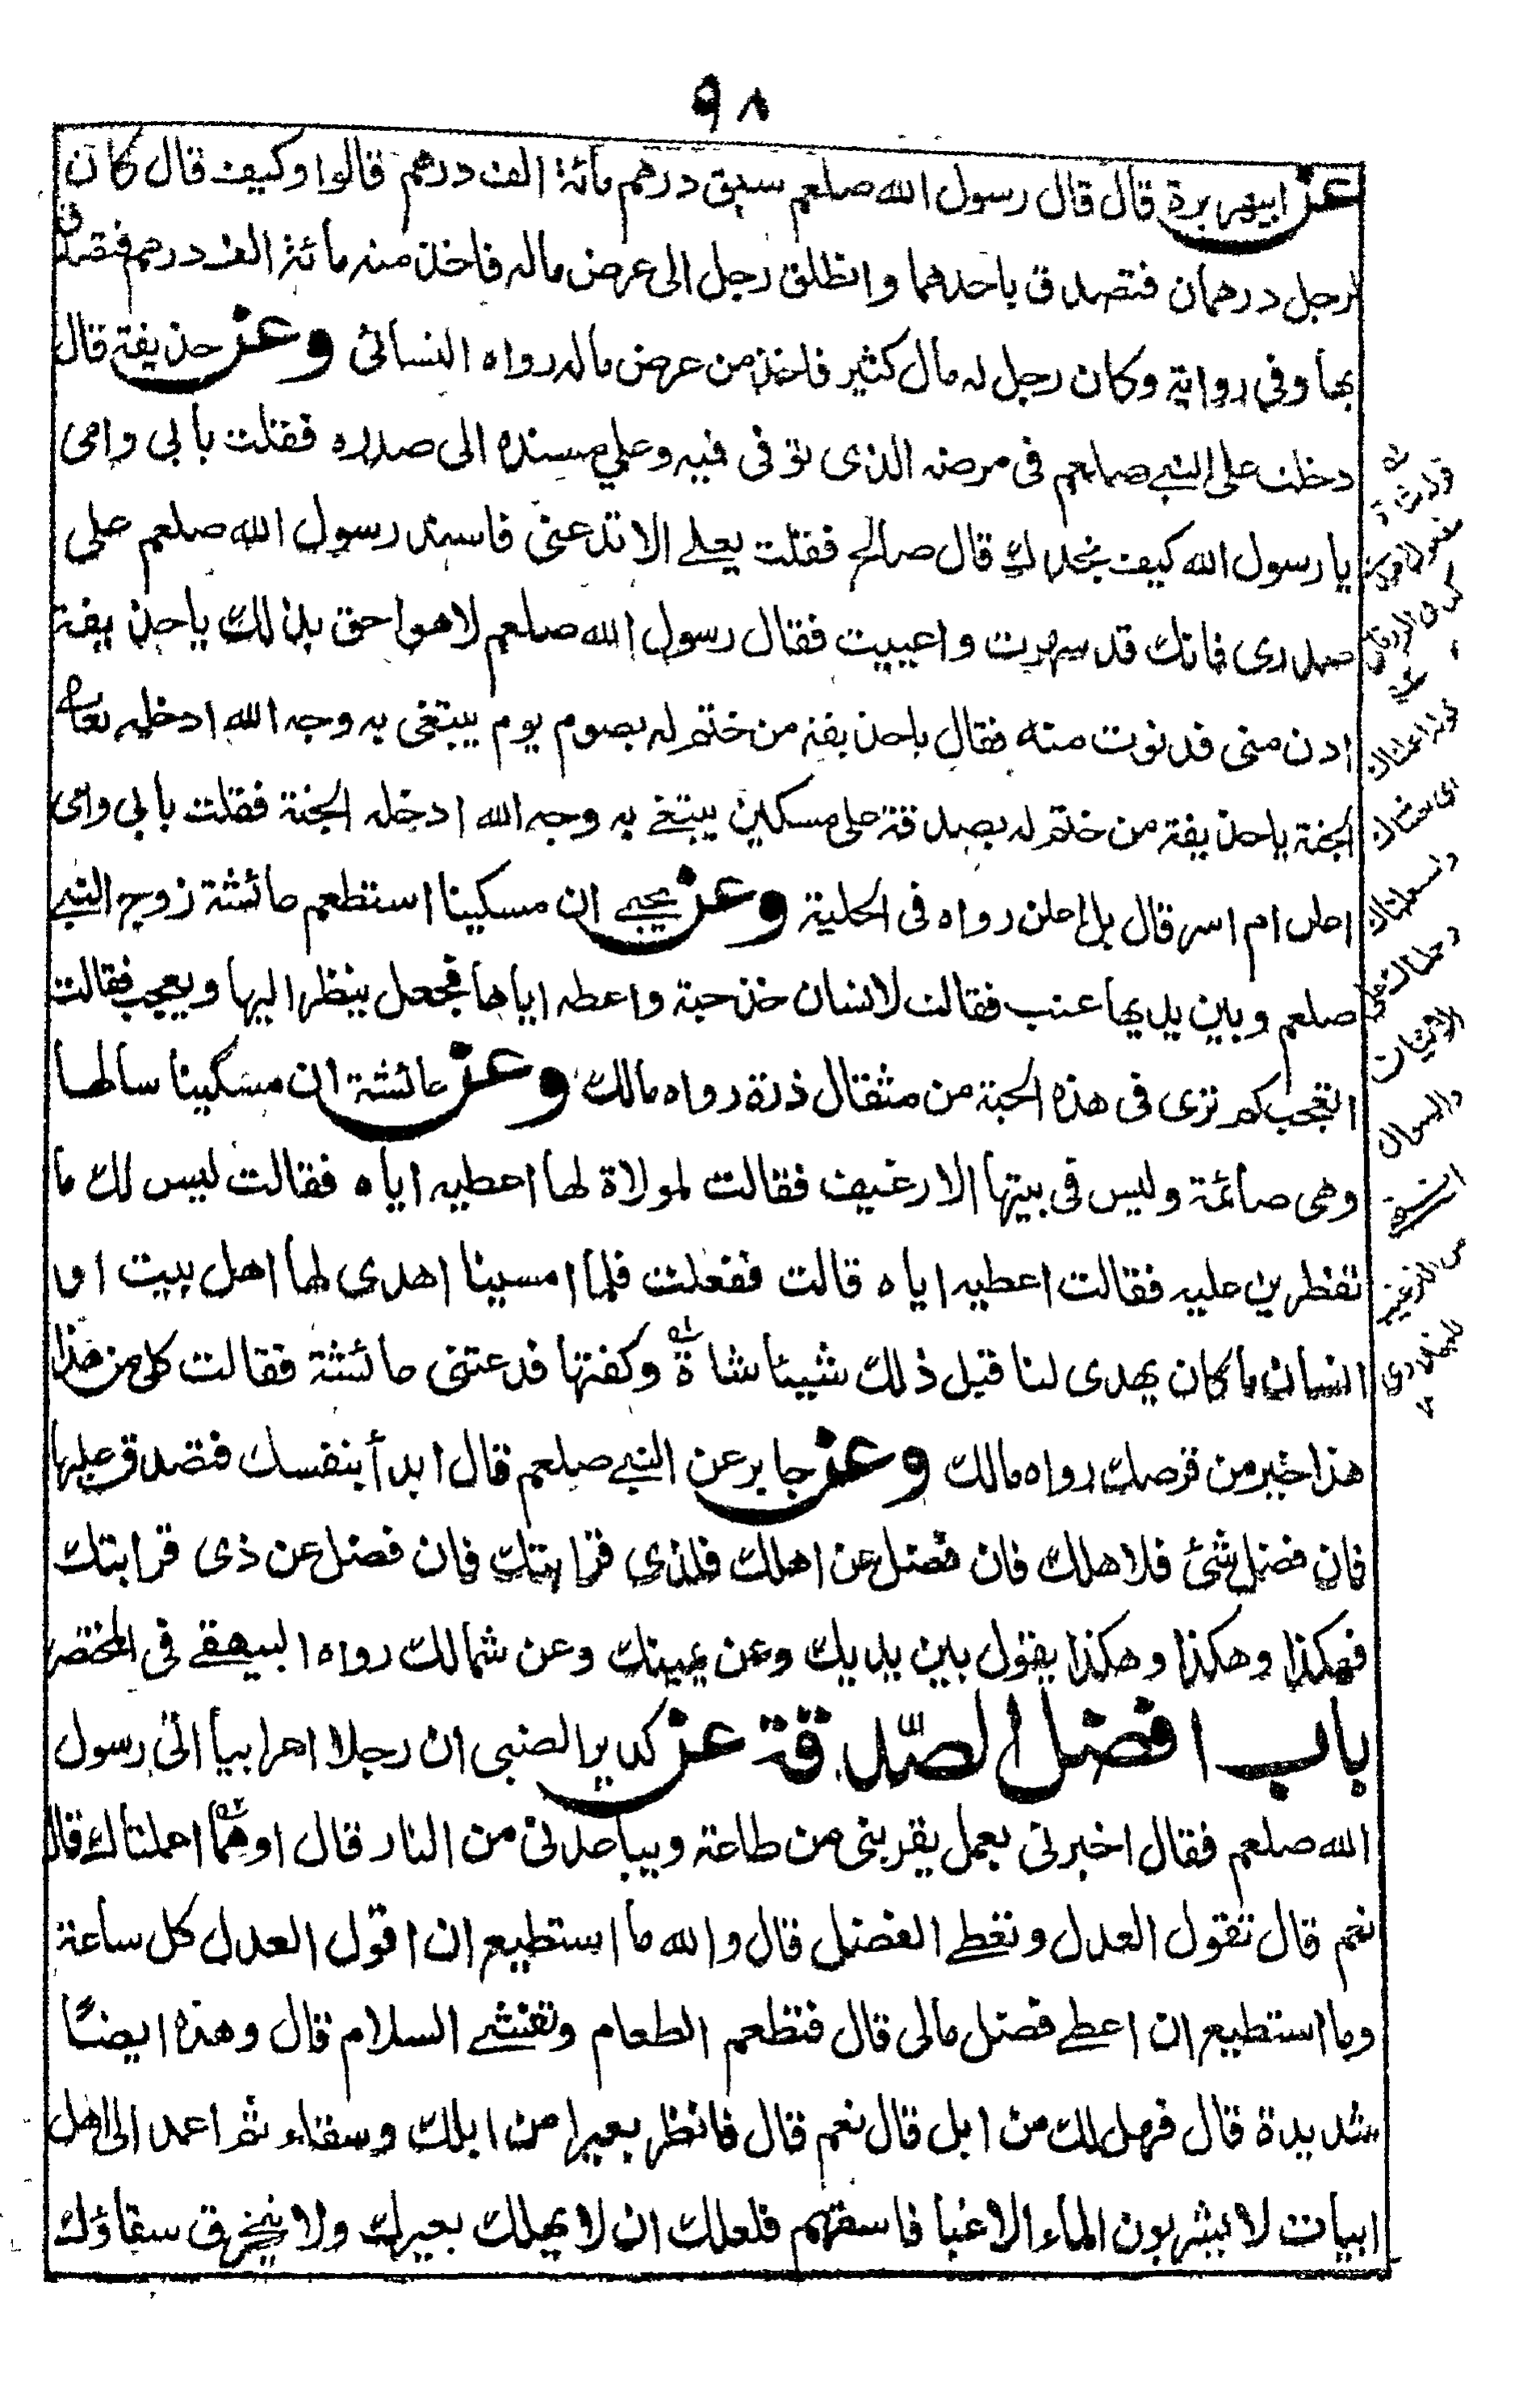 ٩٨
عن ابيهريرة قال قال رسول الله صلعم سبق درهم مائة الف درهم قالوا وكيف قال كان
لرجل درهمان فتصدق باحدهما وانطلق رجل الى عرض ماله فاخذ منه مائة الف درهم فتصدق
بها وفى رواية وكان رجل له مال كثير فاخذ من عرض ماله رواه النسائى وعن حذيفة قال
دخلت على النبي صلعم فى مرضه الذى توفى فيه وعلي مسنده الى صدره فقلت بابى وامى
يا رسول الله كيف نجدك قال صالح فقلت يعلے الا تدعنى فاسند رسول الله صلعم على
صدرى فانك قد سهرت واعييت فقال رسول الله صلعم لا هو احق بذلك يا حذيفة
ادن منى فدنوت منه فقال ياحذيفة من ختم له بصوم يوم يبتغى به وجه الله ادخله تعا
الجنة ياحذيفة من ختم له بصدقة على مسكين يبتغے به وجه الله ادخله الجنة فقلت بابى وامى
اعلن ام اسر قال بل اعلن رواه فى الحلية وعن يحيے ان مسكينا استطعم عائشة زوج النبے
صلعم وبين يديها عنب فقالت لانسان خذ حبة واعطه اياها فجعل ينظر اليها ويعجب فقالت
اتعجب كم ترى فى هذه الحبة من مثقال ذرة رواه مالك وعن عائشة ان مسكينا سالها
وهى صائمة وليس فى بيتها الا رغيف فقالت لمولاة لها اعطيه اياه فقالت ليس لك ما
تفطرين عليه فقالت اعطيه اياه قالت ففعلت فلما امسينا اهدى لها اهل بيت او
انسان ما كان يهدى لنا قبل ذلك شيئا شاة وكفنها فدعتنى عائشة فقالت كلى من هذا
هذا خير من قرصك رواه مالك وعن جابر عن النبے صلعم قال ابدأ بنفسك فتصدق عليها
فان فضل شئ فلاهلك فان فضل عن اهلك فلذى قرابتك فان فضل عن ذى قرابتك
فهكذا وهكذا وهكذا يقول بين يديك وعن يمينك وعن شمالك رواه البيهقے فى المختصر
باب افضل الصّدقة عن كدير الضبى ان رجلا اعرابيا اتى رسول
الله صلعم فقال اخبرنى بعمل يقربنى من طاعته ويباعدنى من النار قال اوهما اعملتاك قال
نعم قال تقول العدل وتعطے الفضل قال والله ما استطيع ان اقول العدل كل ساعة
وما استطيع ان اعطے فضل مالى قال فتطعم الطعام وتفشے السلام قال وهذه ايضًا
شديدة قال فهل لك من ابل قال نعم قال فانظر بعيرا من ابلك وسقاء ثم اعمد الى اهل
ابيات لا يشربون الماء الا غبا فاسقهم فلعلك ان لا يهلك بعيرك ولا ينخرق سقاؤك